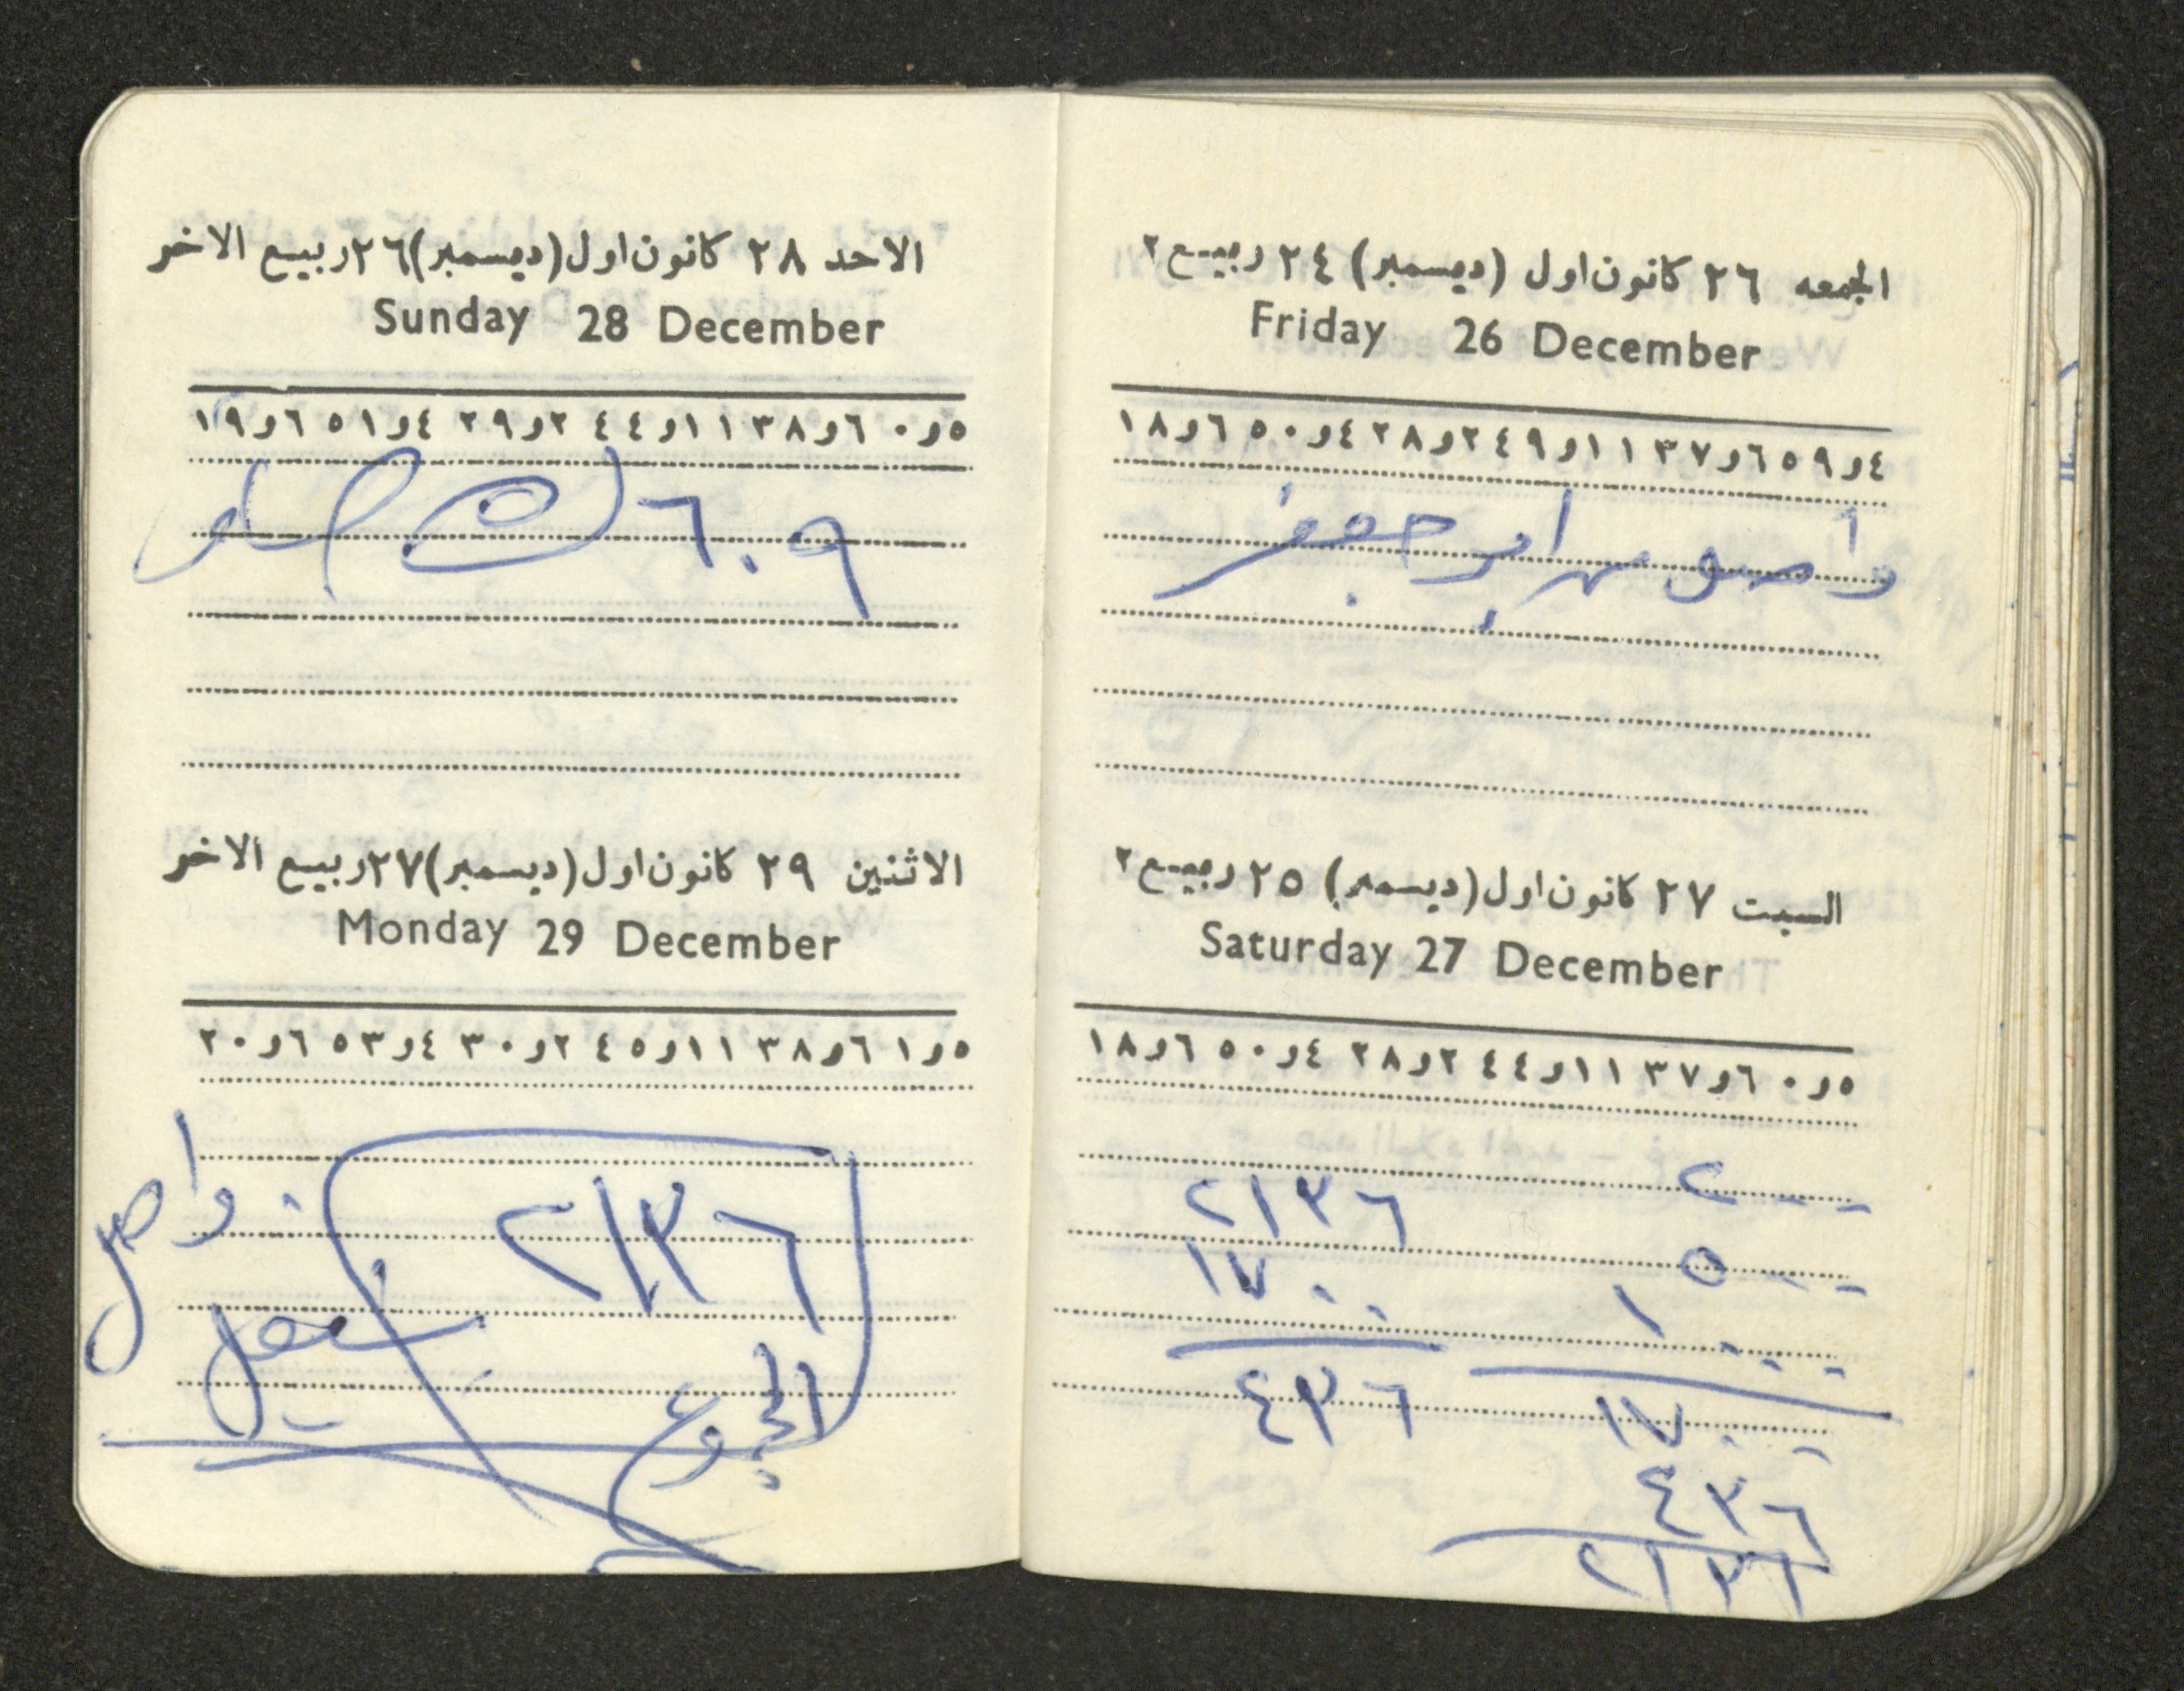 الجمعه ٢٦ كانون اول (ديسمبر) ٢٤ ربيع ٢
Friday 26 December
٤ر٥٩ ٦ر٣٧ ١١ر٤٩ ٢ر٢٨ ٤ر٥٠ ٦ر١٨
ابو جعفر
السبت ٢٧ كانون اول (ديسمبر) ٢٥ ربيع ٢
Saturday 27 December
٥ر٠ ٦ر٣٧ ١١ر٤٤ ٢ر٢٨ ٤ر٥٠ ٦ر١٨
٢٠٠ ٢١٣٦
٥٠٠ ١٧٠٠
١٠٠٠
١٧٠٠ ٤٣٦
٤٣٦
٢١٣٦
الاحد ٢٨ كانون اول (ديسمبر) ٢٦ ربيع الاخر
Sunday 28 December
٥ر٠ ٦ر٣٨ ١١ر٤٤ ٢ر٢٩ ٤ر٥١ ٦ر١٩
٦٠٩
الاثنين ٢٩ كانون اول (ديسمبر) ٢٧ ربيع الاخر
Monday 29 December
٥ر١ ٦ر٣٨ ١١ر٤٥ ٢ر٣٠ ٤ر٥٣ ٦ر٢٠
٢١٣٦
المجموع